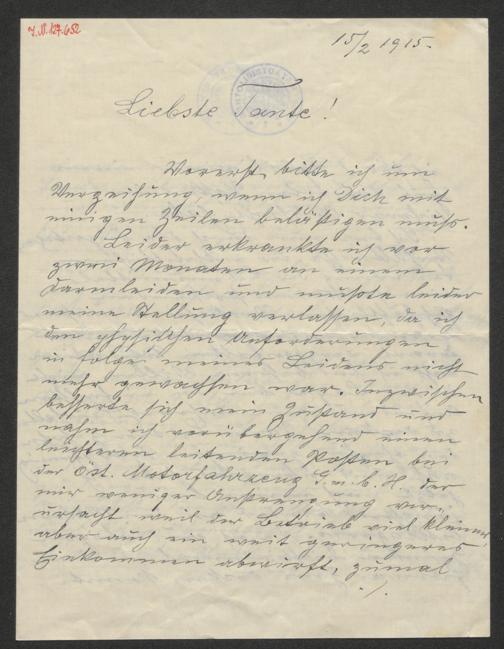 J.N. 127.652
15/2 1915.
Liebste Tante!
Vorerst bitte ich um
Verzeihung, wenn ich Dich mit
einigen Zeilen belästigen muss.
Leider erkrankte ich vor
zwei Monaten an einem
Darmleiden und musste leider
meine Stellung verlassen, da ich
den physischen Anforderungen
in folge meines Leidens nicht
mehr gewachsen war. Inzwischen
besserte sich mein Zustand und
nahm ich vorübergehend einen
leichteren leitenden Posten bei
der Öst. Motorfahrzeug G.m.b.H. der
mir weniger Anstrengung ver-
ursacht weil der Betrieb viel kleiner,
aber auch ein weit geringeres
Einkommen abwirft, zumal
./.